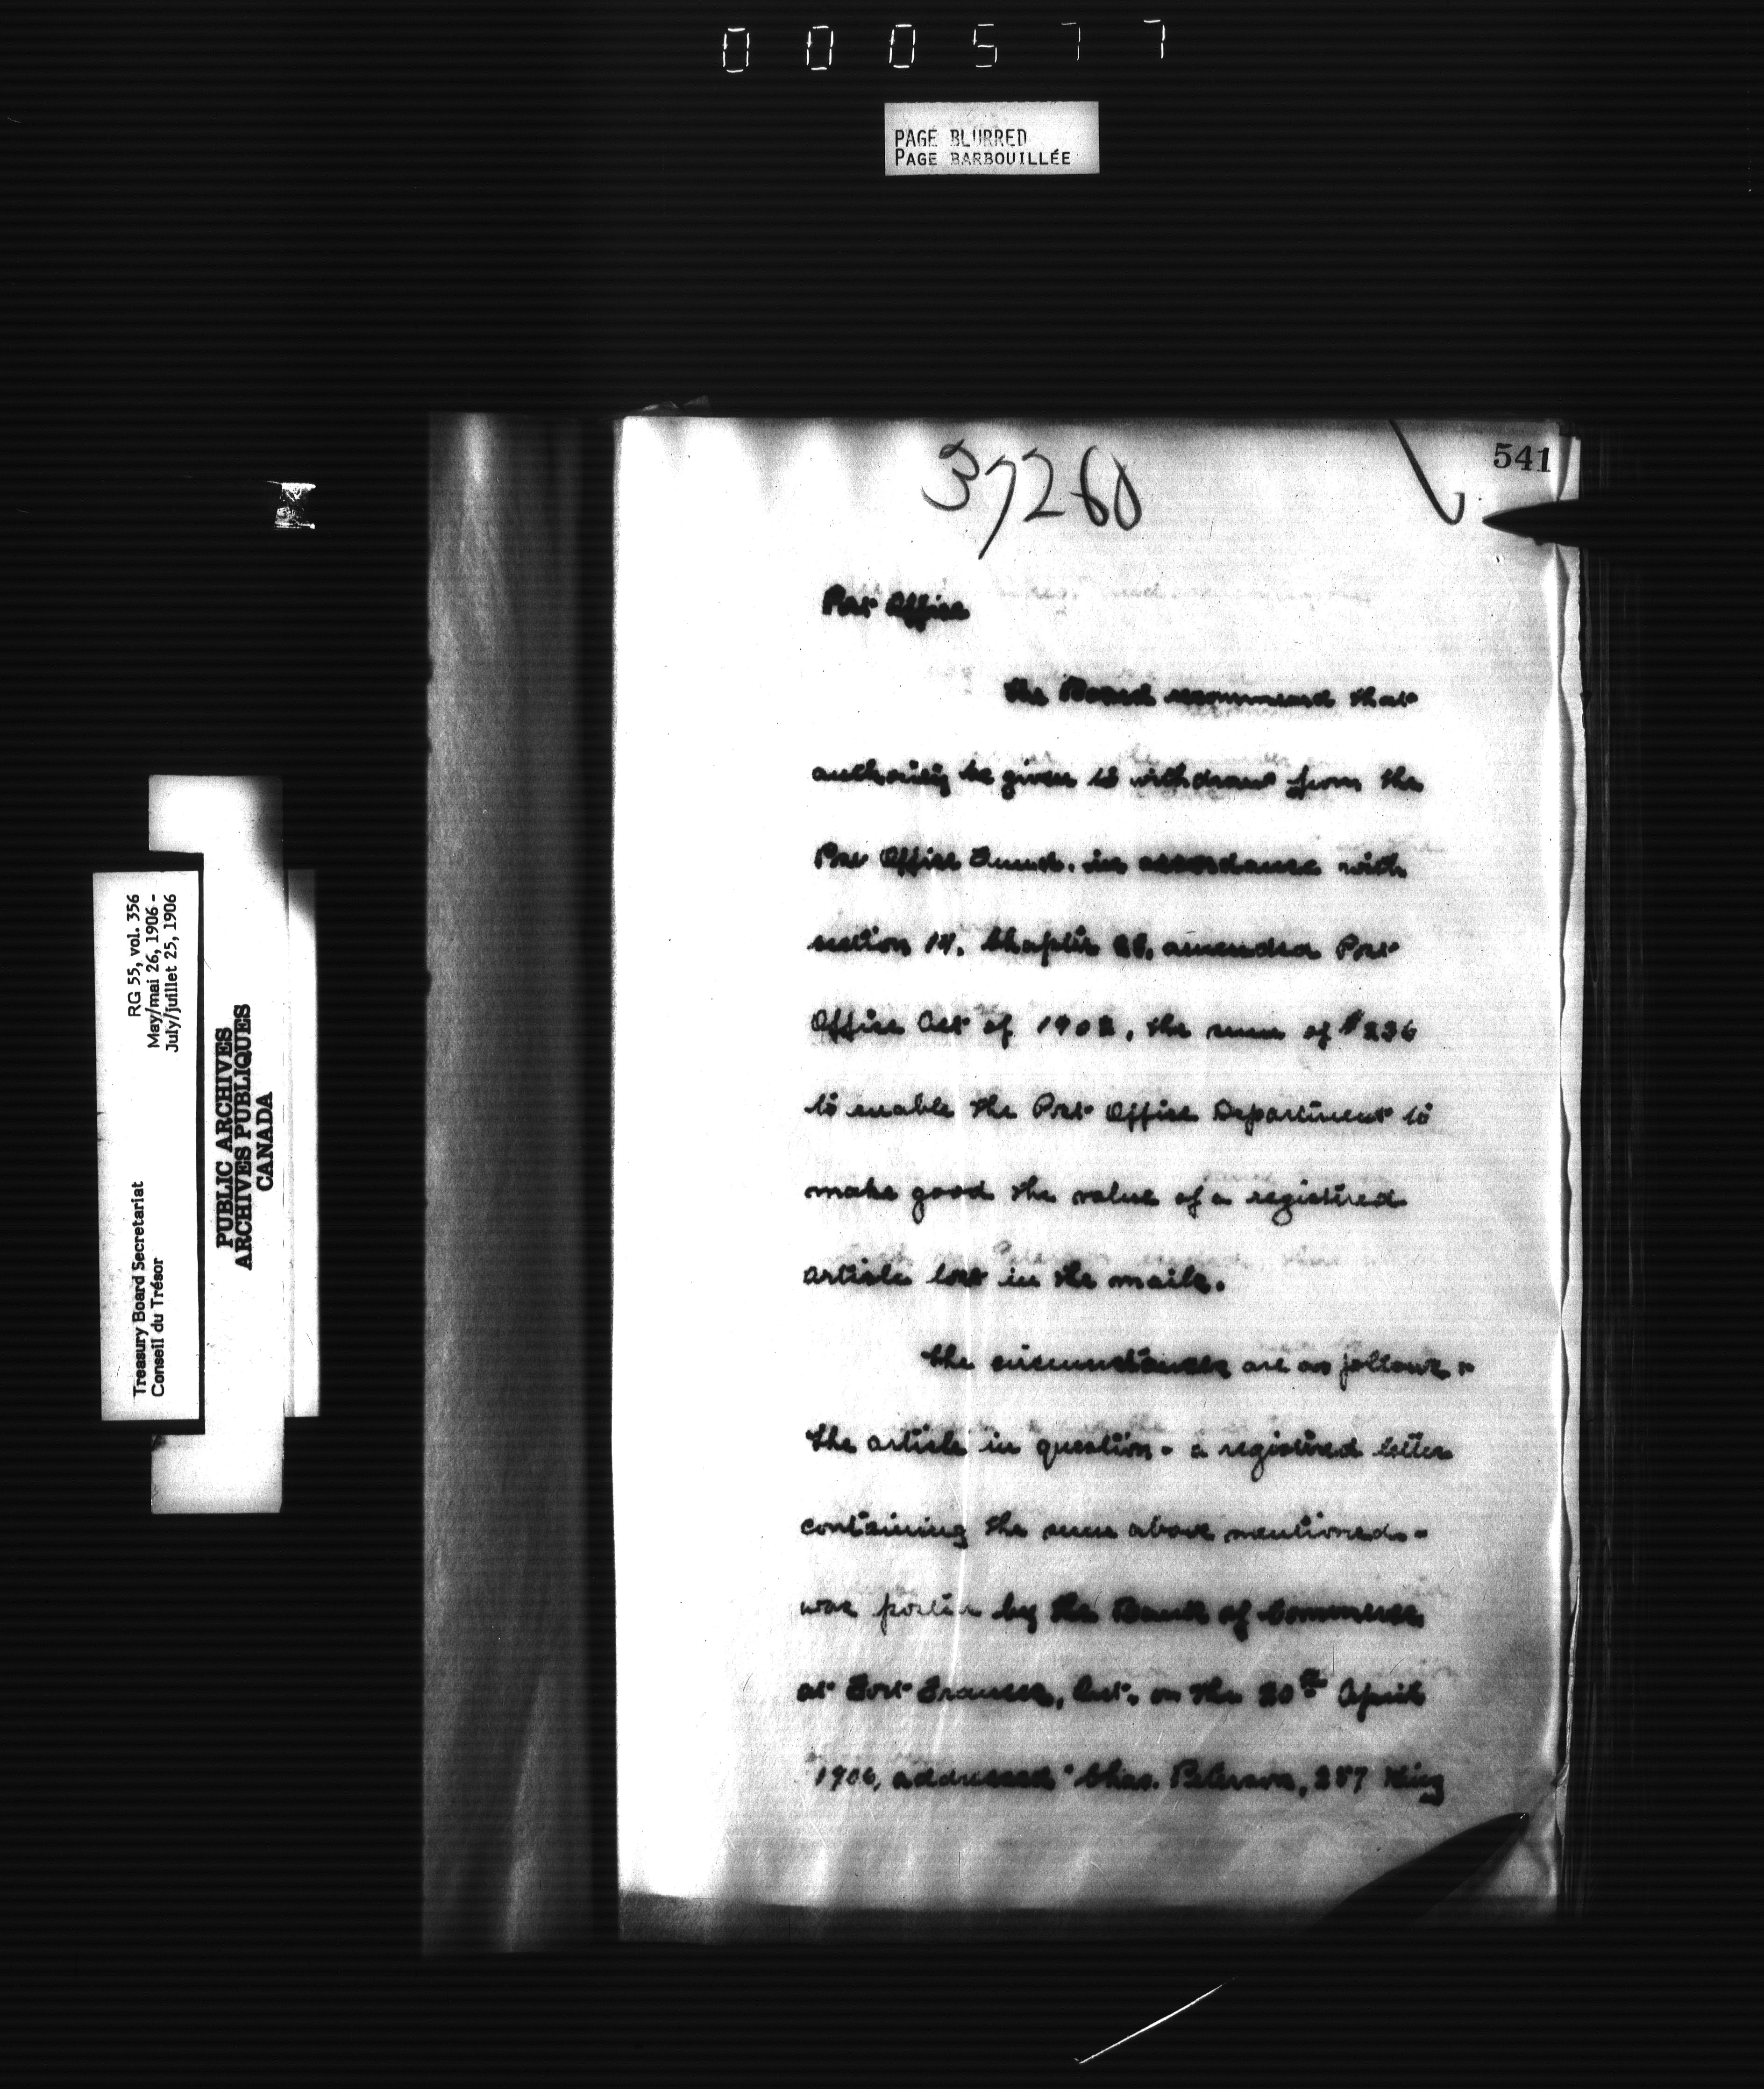 000577
PAGE BLURRED
PAGE BARBOUILLÉE
541
37260
Post Office
The Board recommend that
authority be given to withdraw from the
Post Office Guard. in accordance with
section 14, Chapter 28, amended Post
Office Act of 1902, the sum of $236
to enable the Post Office Department to
make good the value of a registered
article lost in the mails.
The circumstances are as follows:-
The article in question - a registered letter
containing the sum above mentioned -
was posted by the Bank of Commerce
at Fort Frances, Ont, on the 20th April
1906, addressed "Chas. Peterson, 287 King
RG 55, vol. 356
May/mai 26, 1906 -
July/juillet 25, 1906
Treasury Board Secretariat
Conseil du Trésor
PUBLIC ARCHIVES
ARCHIVES PUBLIQUES
CANADA